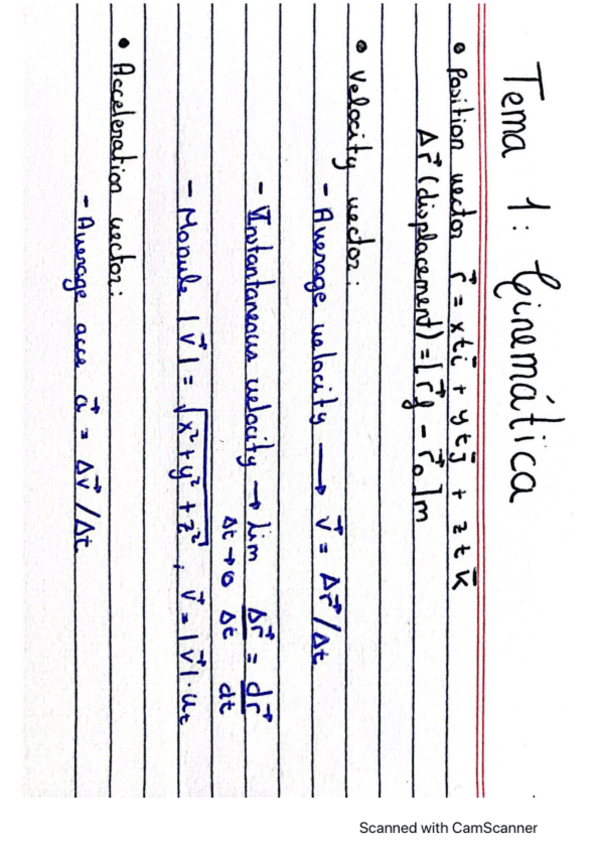 Tema 1: Cinemática
• Position vector r⃗ = xt i⃗ + yt j⃗ + zt k⃗
Δr⃗ (displacement) = [r⃗f - r⃗0] m
• Velocity vector:
- Average velocity → v⃗ = Δr⃗/Δt
- Instantaneous velocity → lim Δt→0 Δr⃗/Δt = dr⃗/dt
- Monule |v⃗| = √x²+y²+z², v⃗ = |v⃗|·ut
• Acceleration vector:
- Average acce a⃗ = Δv⃗/Δt
Scanned with CamScanner